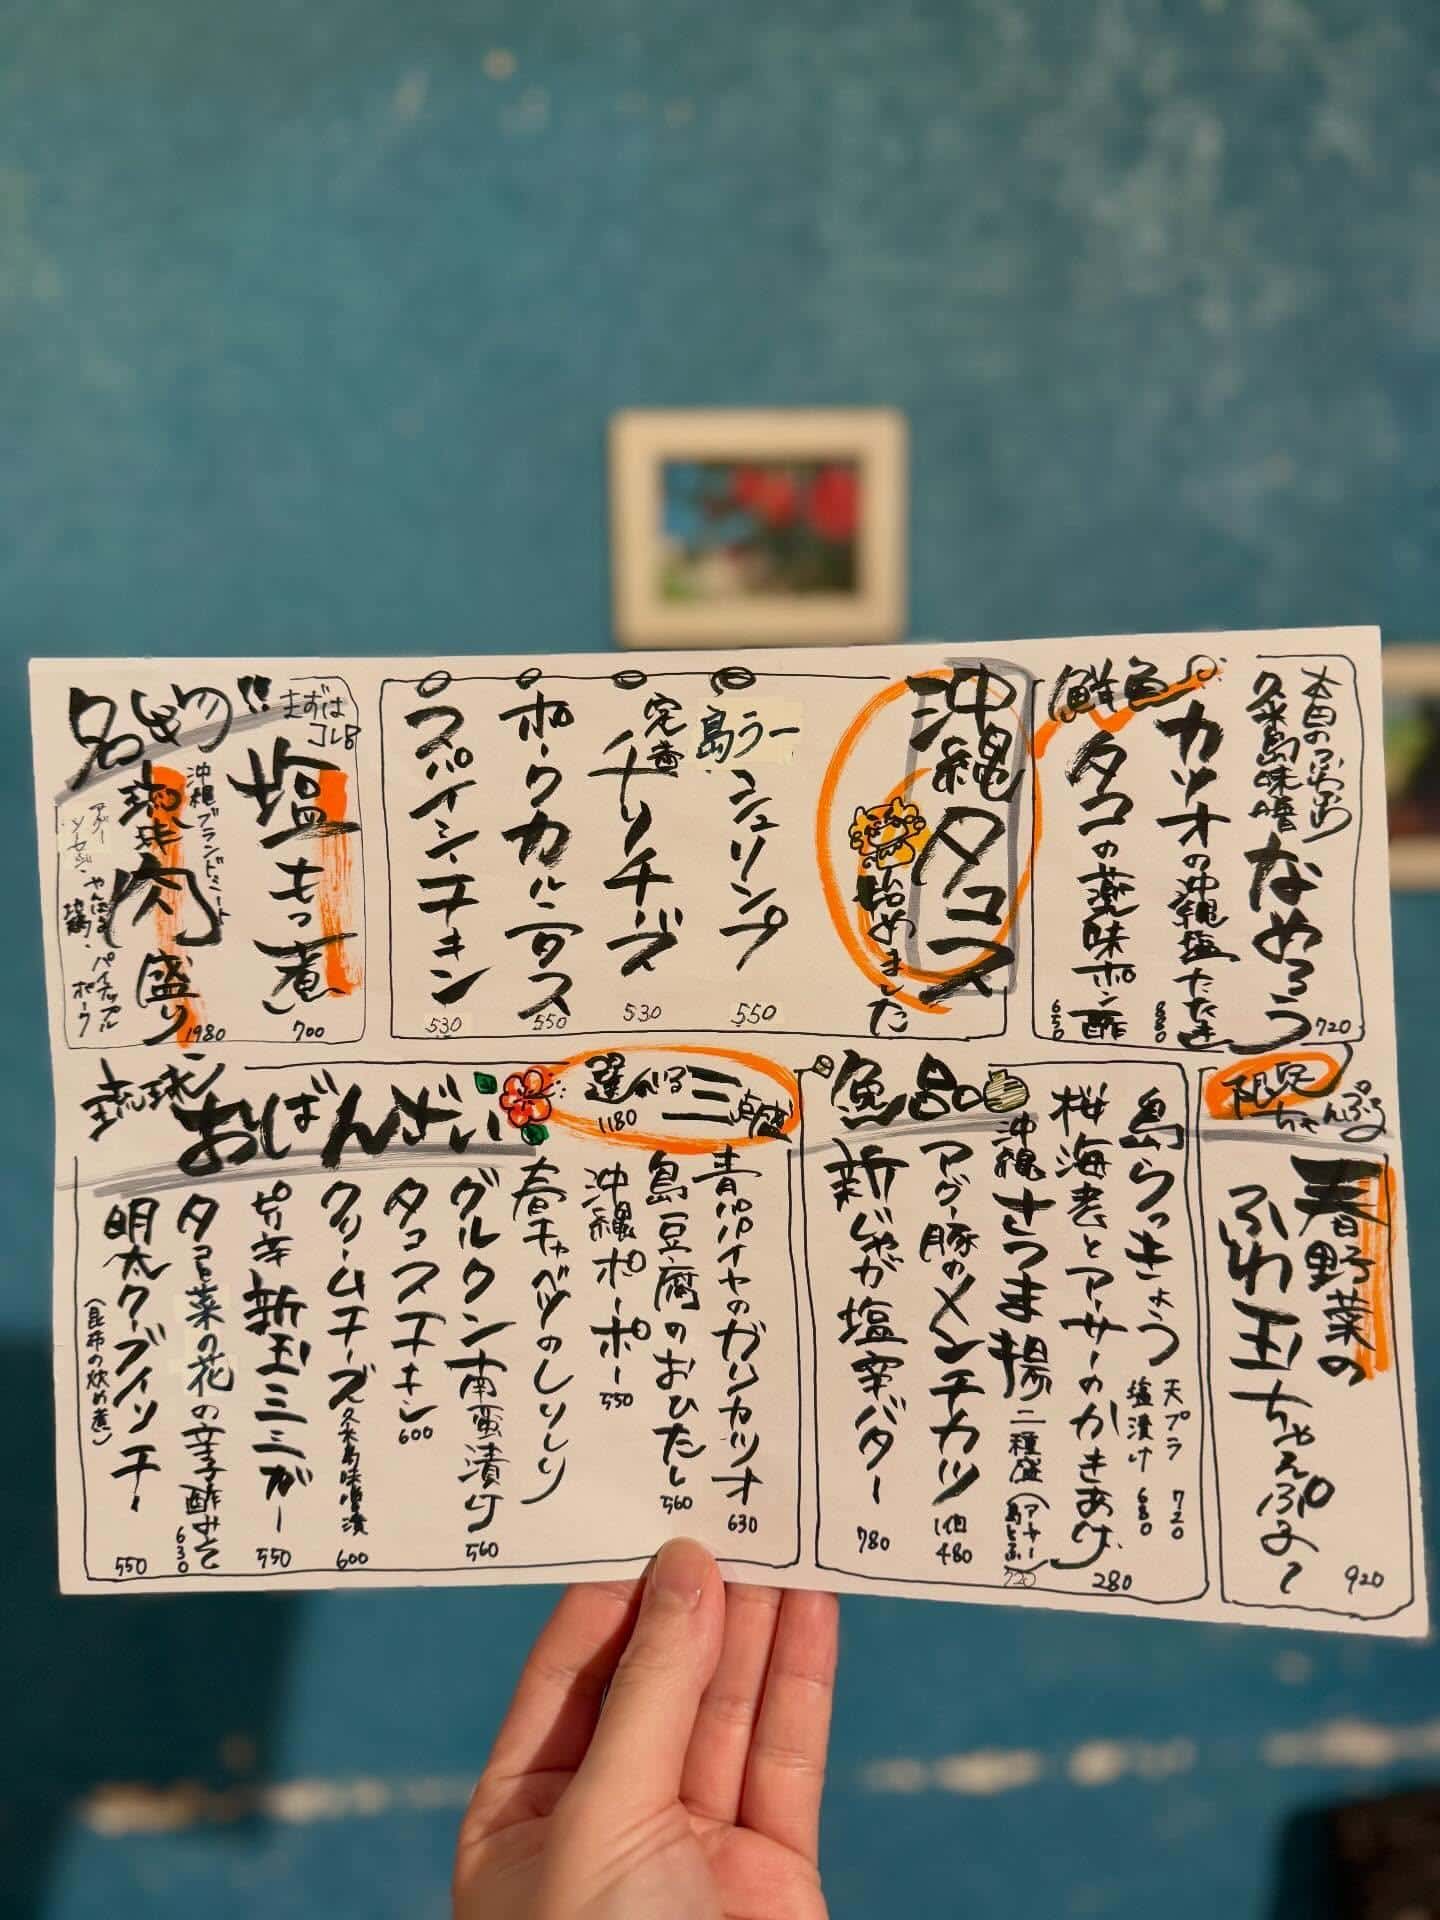 鮮魚
本日のぶつ切り
久米島味噌なめろう 720
カツオの沖縄塩たたき 880
タコの薬味ポン酢 650
沖縄タコス
始めました
島ラー
シュリンプ 550
完熟
チリチーズ 530
ポークカルニタス 550
スパイシーチキン 530
名物!!
まずは
コレ
塩もつ煮 700
沖縄ブランドミート
琉球肉盛り 1980
アグー
ソーセージ・やんばる
地鶏・パイナップル
ポーク
限定
ちゃんぷる
春野菜の
ふわ玉ちゃんぷるー 920
逸品
島らっきょう
天プラ 720
塩漬け 680
桜海老とアーサーのかきあげ 280
沖縄さつま揚 二種盛(アーサー
島とうふ) 720
アグー豚のメンチカツ 1個 480
新じゃが塩辛バター 780
琉球
おばんざい
選べる三点盛
1180
青パパイヤのガリカツオ 630
島豆腐のおひたし 560
沖縄ポーポー 550
春キャベツのしりしり
グルクン南蛮漬け 560
タコスチキン 600
クリームチーズ久米島味噌漬 600
ピリ辛新玉ミミガー 550
タコと菜の花の辛子酢みそ 630
明太クーブイリチー 550
(昆布の炒め煮)